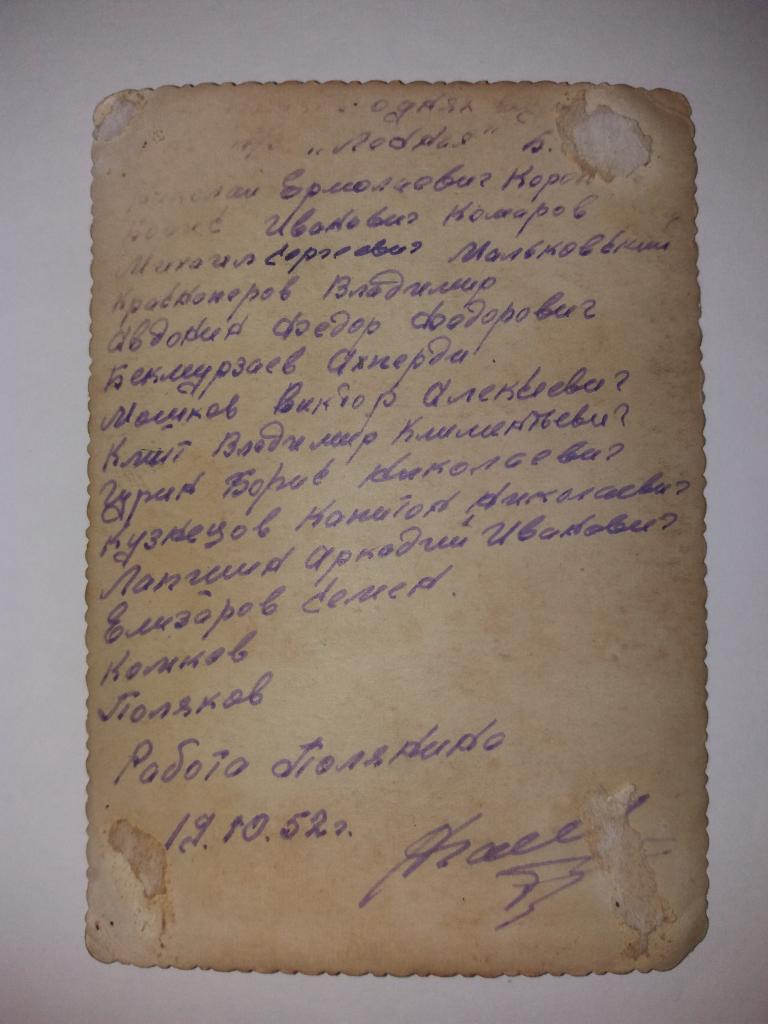 "Лобная"
Ермолаевич
Иванович Комаров
Михаил Сергеевич Мальковский
Красноперов Владимир
Авдонин Федор Федорович
Бекмурзаев Ахперди
Мошков Виктор Алексеевич
Клит Владимир Климентьевич
Гурин Борис Николаевич
Кузнецов Капитон Николаевич
Лапшин Аркадий Иванович
Елизаров Семен.
Коликов
Поляков
Работа Полянино
19.10.52 г.